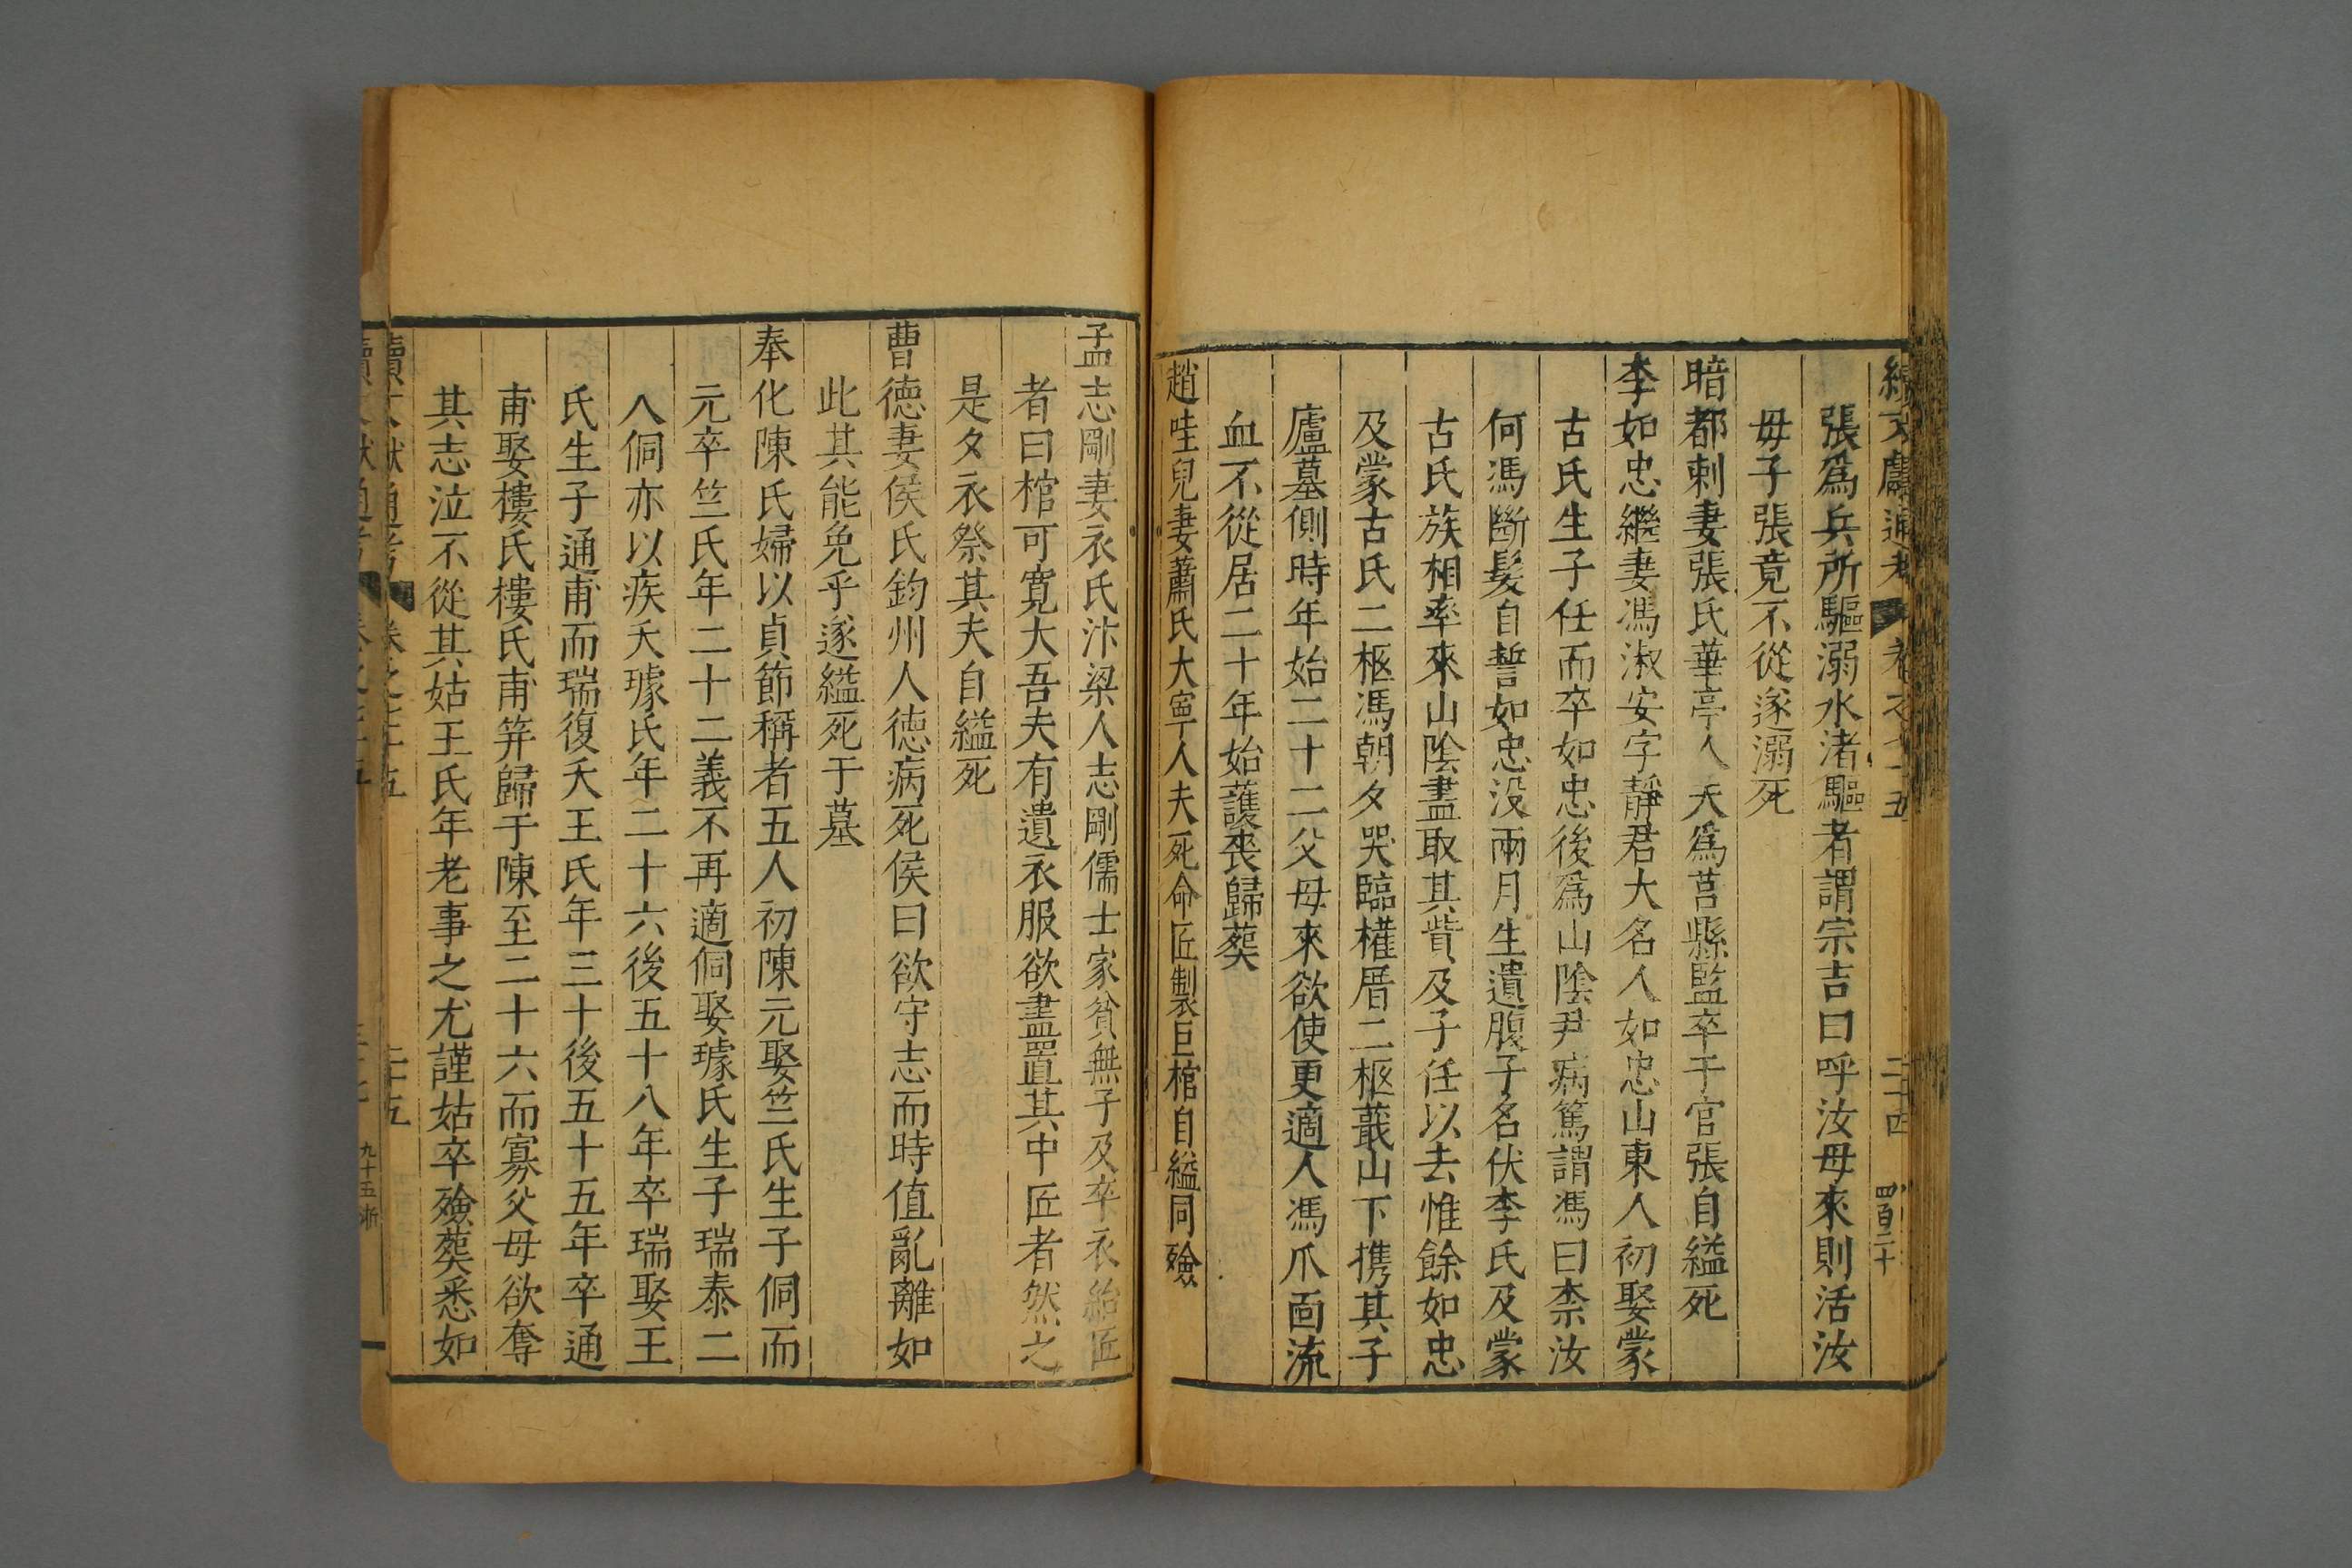 張爲兵所驅溺水渚驅者謂宗吉曰呼汝母來則活汝
毋子張竟不從遂溺死
暗都剌妻張氏華亭人夫爲莒縣監卒于官張自縊死
李如忠繼妻馮淑安字靜君大名人如忠山東人初娶蒙
古氏生子任而卒如忠後爲山陰尹病篤謂馮曰柰汝
何馮斷髮自誓如忠没兩月生遺腹子名伏李氏及蒙
古氏族相率來山陰盡取其貲及子任以去惟餘如忠
及蒙古氏二柩馮朝夕哭臨權厝二柩蕺山下携其子
廬墓側時年始二十二父母來欲使更適人馮爪面流
血不從居二十年始護喪歸葬
趙哇兒妻蕭氏大寧人夫死命匠製巨棺自縊同殮
孟志剛妻衣氏汴梁人志剛儒士家貧無子及卒衣紿匠
者曰棺可寛大吾夫有遺衣服欲盡置其中匠者然之
是夕衣祭其夫自縊死
曹德妻侯氏鈞州人德病死侯曰欲守志而時值亂離如
此其能免乎遂縊死于墓
奉化陳氏婦以貞節稱者五人初陳元娶竺氏生子侗而
元卒竺氏年二十二義不再適侗娶璩氏生子瑞泰二
人侗亦以疾夭璩氏年二十六後五十八年卒瑞娶王
氏生子通甫而瑞復夭王氏年三十後五十五年卒通
甫娶樓氏樓氏甫笄歸于陳至二十六而寡父母欲奪
其志泣不從其姑王氏年老事之尤謹姑卒殮葬悉如